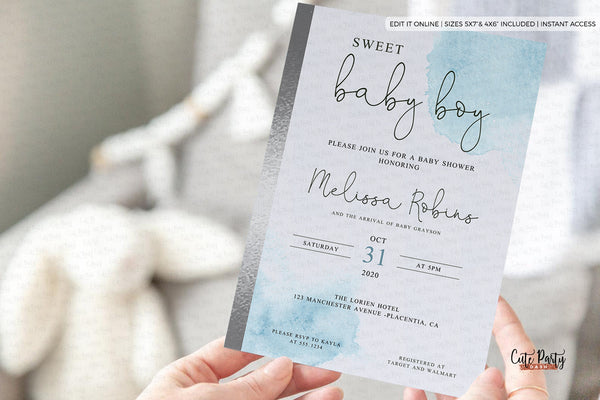 EDIT IT ONLINE | SIZES 5X7"& 4X6" INCLUDED | INSTANT ACCESS
SWEET
baby boy
PLEASE JOIN US FOR A BABY SHOWER
HONORING
Melissa Robins
AND THE ARRIVAL OF BABY GRAYSON
OCT
SATURDAY 31 AT 5PM
2020
THE LORIEN HOTEL
123 MANCHESTER AVENUE -PLACENTIA, CA
PLEASE RSVP TO KAYLA
AT 555.1234
REGISTERED AT
TARGET AND WALMART
Cute Party
DASH